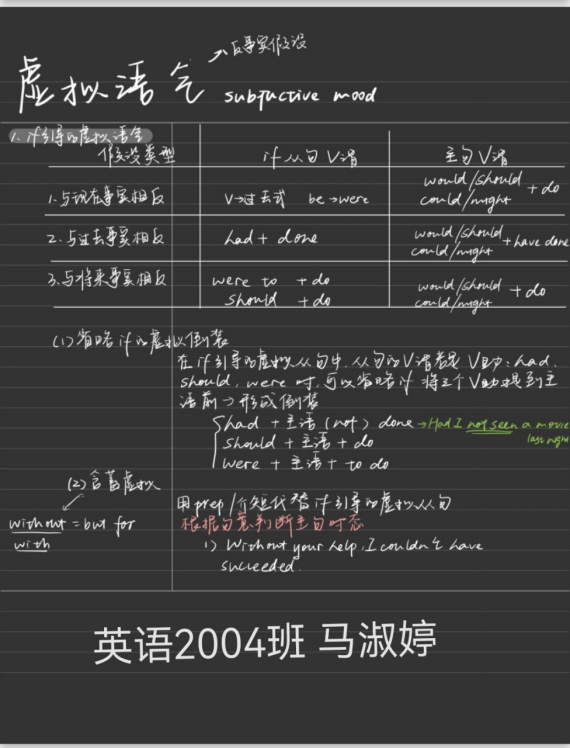 →反事实假设
虚拟语气 subjuctive mood
1. if引导的虚拟语气
假设类型 if从句V谓 主句V谓
1.与现在事实相反 V→过去式 be→were would/should could/might + do
2.与过去事实相反 had + done would/should could/might + have done
3.与将来事实相反 were to + do should + do would/should could/might + do
(1)省略if的虚拟倒装
在if引导的虚拟从句中,从句的V谓若是V助:had,
should, were时,可以省略if 将三个V助提到主
语前→形成倒装
had + 主语 (not) done →Had I not seen a movie
last night
should + 主语 + do
were + 主语 + to do
(2)含蓄虚拟
用prep/个短代替if引导的虚拟从句
without = but for
根据句意判断主句时态
with
1) Without your help, I couldn't have
succeeded.
英语2004班 马淑婷